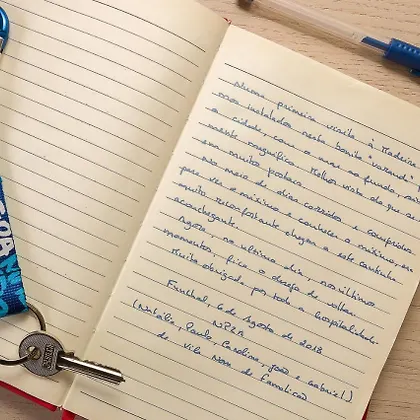 Numa primeira visita à Madeira
mos instalados nesta bonita "varanda"
a cidade, com o mar ao fundo,
mente magnífica. Melhor vista do que
era muito
No meio de dias corridos e compridos
para ver o máximo e conhecer o máximo,
muito reconfortante chegar a este cantinho
aconchegante.
Agora, no último dia, nos últimos
momentos, fica o desejo de voltar.
Muito obrigada por toda a hospitalidade.
Funchal, 6 de Agosto de 2018
(Natália, Paulo, Carolina, João e Gabriel)
de Vila Nova de Famalicão